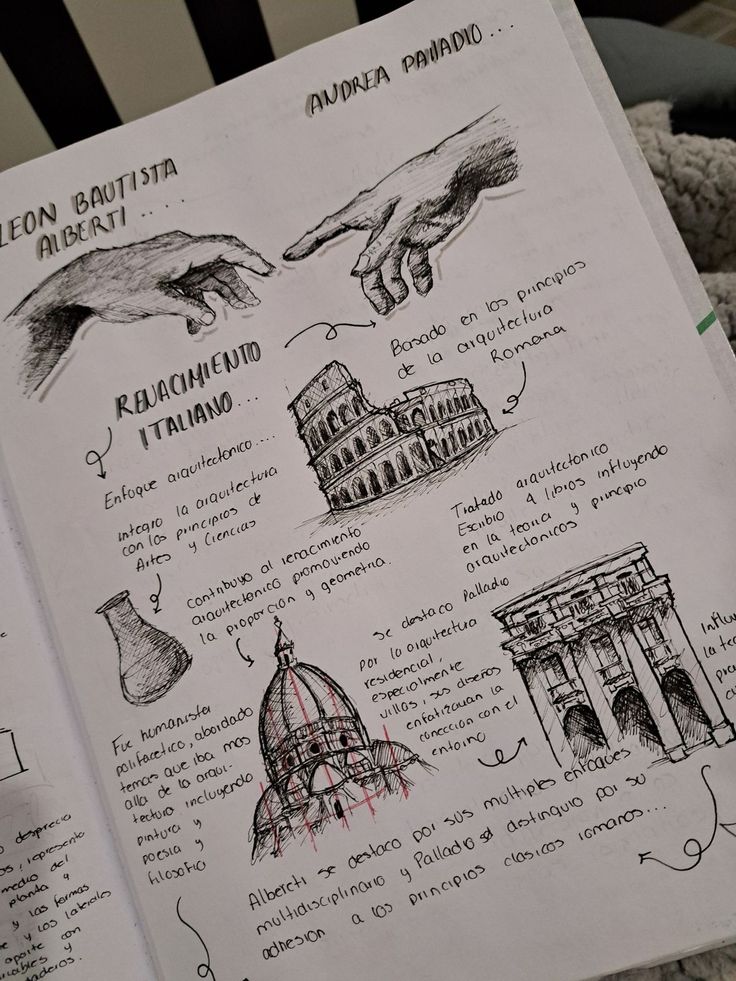 LEON BAUTISTA
ALBERTI .....
ANDREA PALLADIO ...
RENACIMIENTO
ITALIANO...
Basado en los principios
de la arquitectura
Romana
Enfoque arquitectonico ....
integro la arquitectura
con los principios de
Artes y Ciencias
Tratado arquitectonico
Escribio 4 libros influyendo
en la teoria y principio
arquitectonicos
contribuyo al renacimiento
arquitectonico promoviendo
la proporción y geometria.
se destaco Palladio
por la arquitectura
residencial,
especialmente
villas, sus diseños
enfatizauan la
conección con el
entorno
Influ
la te
Fue humanista
polifacetico, abordado
temas que iba mas
alla de la arqui-
tectura incluyendo
pintura y
poesia y
filosofia
Albercti se destaco por sus multiples enfoques
multidisciplinario y Palladio se distinguio por su
adhesion a los principios clasicos romanos...
desprecia
os, represento
medio del
planta y
y las formas
e y los laterals
aporte con
rcables y
daderos.